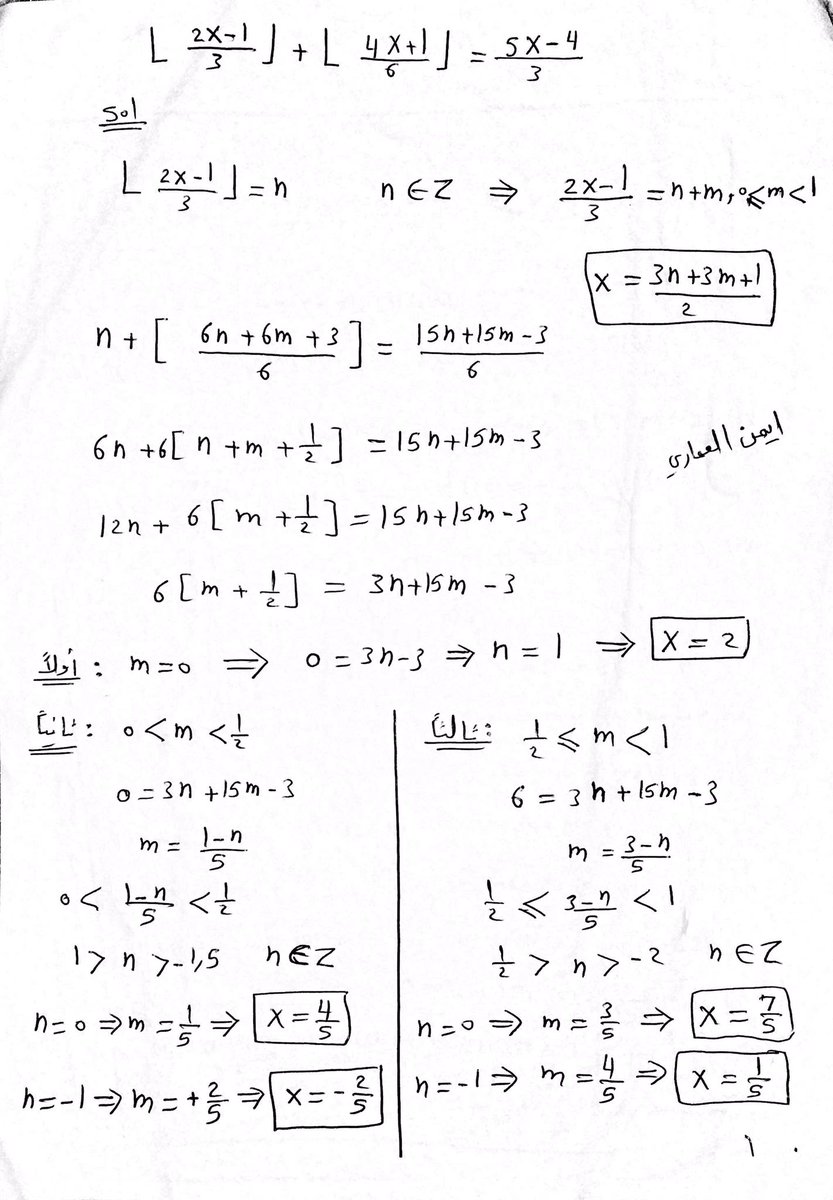 ⌊ (2x-1)/3 ⌋ + ⌊ (4x+1)/6 ⌋ = (5x-4)/3
Sol
⌊ (2x-1)/3 ⌋ = n n ∈ Z ⇒ (2x-1)/3 = n+m, 0≤m<1
x = (3n+3m+1)/2
n + [ (6n+6m+3)/6 ] = (15n+15m-3)/6
6n + 6[ n+m+1/2 ] = 15n+15m-3
ايمن العماري
12n + 6[ m+1/2 ] = 15n+15m-3
6[ m+1/2 ] = 3n+15m-3
أولاً : m=0 ⇒ 0 = 3n-3 ⇒ n = 1 ⇒ x = 2
ثانياً : 0<m<1/2
0 = 3n+15m-3
m = (1-n)/5
0 < (1-n)/5 < 1/2
1 > n > -1,5 n∈Z
n=0 ⇒ m = 1/5 ⇒ x = 4/5
n=-1 ⇒ m = +2/5 ⇒ x = -2/5
ثالثاً : 1/2 ≤ m < 1
6 = 3n+15m-3
m = (3-n)/5
1/2 ≤ (3-n)/5 < 1
1/2 > n > -2 n∈Z
n=0 ⇒ m = 3/5 ⇒ x = 7/5
n=-1 ⇒ m = 4/5 ⇒ x = 1/5
١